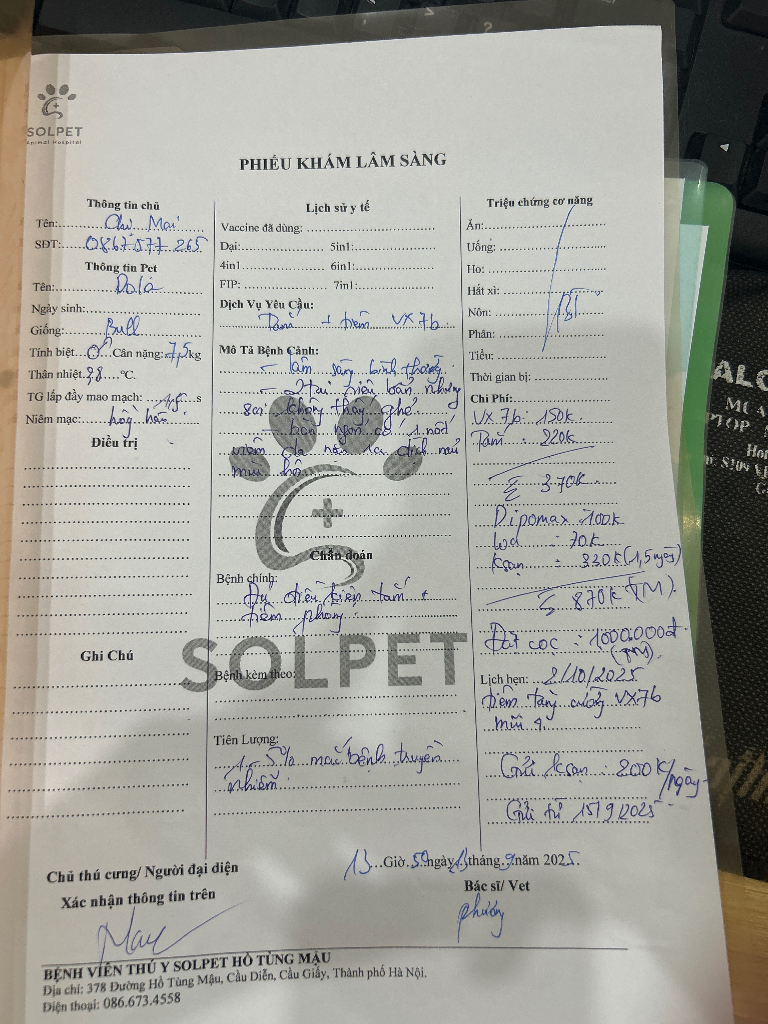 SOLPET
Animal Hospital
PHIẾU KHÁM LÂM SÀNG
Thông tin chủ
Tên: Chị Mai
SĐT: 0867.577.265
Thông tin Pet
Tên:
Ngày sinh:
Giống: Bull
Tính biệt ♂ Cân nặng: 7,5 kg
Thân nhiệt 38 °C.
TG lấp đầy mao mạch: 1,5 s
Niêm mạc: hồng hào
Điều trị
Ghi Chú
Lịch sử y tế
Vaccine đã dùng:
Dại: 5in1:
4in1 6in1:
FIP: 7in1:
Dịch Vụ Yêu Cầu:
Tắm + tiêm VX 7b
Mô Tả Bệnh Cảnh:
- lâm sàng bình thường
- 2 tai nhiều bẩn nhưng
soi không thấy ghẻ
- có 1 nốt
viêm da dịch mủ
mùi hôi
Chẩn đoán
Bệnh chính:
Đủ điều kiện tắm +
tiêm phòng.
SOLPET
Bệnh kèm theo:
Tiên Lượng:
1 - 5% mắc bệnh truyền
nhiễm
Triệu chứng cơ năng
Ăn:
Uống:
Ho:
Hắt xì:
Nôn: Bt
Phân:
Tiểu:
Thời gian bị:
Chi Phí:
VX 7b: 150k
Tắm: 220k
Σ 370k
Dipomax 100k
: 70k
Ksạn : 330k (1,5 ngày)
Σ 870k (TM).
Đặt cọc : 1000.000đ
(TM).
Lịch hẹn: 2/10/2025
tiêm tăng cường VX7b
mũi 4.
Gửi ksạn : 200k/ngày
Gửi từ 15/9/2025
13 Giờ 59 ngày 13 tháng 9 năm 2025.
Chủ thú cưng/ Người đại diện
Xác nhận thông tin trên
Bác sĩ/ Vet
BỆNH VIỆN THÚ Y SOLPET HỒ TÙNG MẬU
Địa chỉ: 378 Đường Hồ Tùng Mậu, Cầu Diễn, Cầu Giấy, Thành phố Hà Nội.
Điện thoại: 086.673.4558